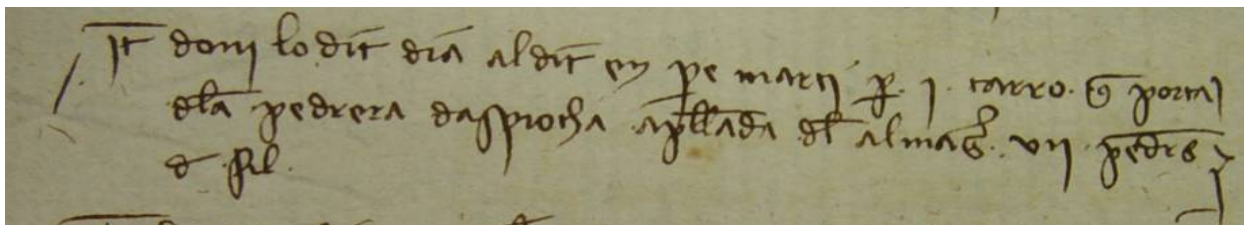 It doni lo dit dia al dit en pe marti per j carro q porta
dla pedrera daspiocha apllada dl almagr vij pedres
d fil